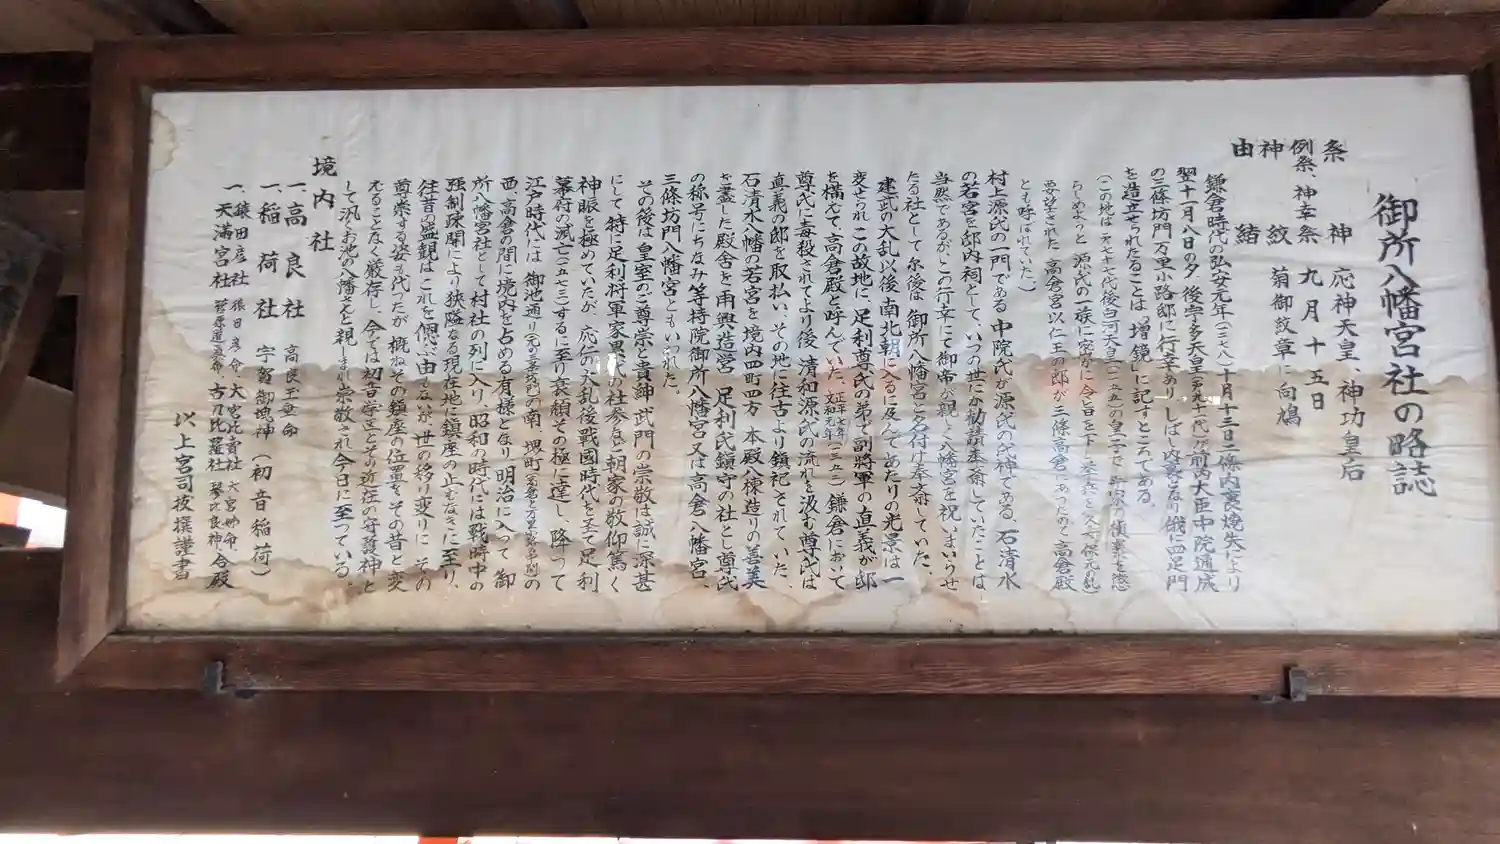 御所八幡宮社の略誌
祭神 応神天皇、神功皇后
例祭、神幸祭 九月十五日
神紋 菊御紋章に向鳩
由緒
鎌倉時代の弘安元年(一二七八)十月十三日二條内裏焼失により
翌十一月八日の夕、後宇多天皇(第九十一代)が前内大臣中院通成
の三條坊門万里小路邸に行幸あり、しばし内裏となり俄に四足門
を造立せられたることは「増鏡」に記すところである。
(この地は第七十七代後白河天皇(一一五五)の皇子で
らしめようと源氏の一族に密かに令旨を下し
高倉宮以仁王の邸が三條高倉にあったので高倉殿
とも呼ばれていた)
村上源氏の一門である中院氏が源氏の氏神である、石清水
の若宮を邸内祠として、いつの世にか勧請奉斎していたことは
当然であるが、この行幸にて御帝が親しく八幡宮を祝いまいらせ
たる社として尓後は御所八幡宮と名付け奉斎していた、
建武の大乱以後南北朝に入るに及んで、あたりの光景は一
変せられ、この故地に、足利尊氏の弟で副将軍の直義が邸
を構えて、高倉殿と呼んでいた、正平七年文和元年(一三五二)鎌倉において
尊氏に毒殺されてより後、清和源氏の流れを汲む尊氏は
直義の邸を取払い、その地に往古より鎮祀されていた、
石清水八幡の若宮を境内四町四方、本殿八棟造りの善美
を盡した殿舎を再興造営、足利氏鎮守の社とし尊氏
の称号にちなみ等持院御所八幡宮又は高倉八幡宮、
三條坊門八幡宮ともいわれた。
その後は皇室のご尊崇と貴紳武門の崇敬は誠に深甚
にして、特に足利将軍家累代の社参など朝家の敬仰篤く
神賑を極めていたが、応仁の大乱後戦國時代を至て足利
幕府の滅亡(一五七三)するに至り衰頽その極に達し、降って
江戸時代には、御池通りの南、堺町の
西、高倉の間に境内を占める有様となり明治に入って、御
所八幡宮社として村社の列に入り、昭和の時代には戦時中の
強制疎開により狭隘なる現在地に鎮座の止むなきに至り、
往昔の盛観はこれを偲ぶ由もないが、世の移り変りに、その
尊崇する姿も代ったが、概ねその鎮座の位置も、その昔と変
えることなく厳存し、今では初音学区とその近在の守護神と
して汎くお池の八幡さんと親しまれ崇敬され今日に至っている。
境内社
一、高良社 高良玉垂命
一、稲荷社 宇賀御魂神(初音稲荷)
一、猿田彦社 猿田彦命、大宮比賣社 大宮姫命、
一、天満宮社 菅原道真命、古刀比羅社 琴比良神 合殿
以上宮司拔撰謹書